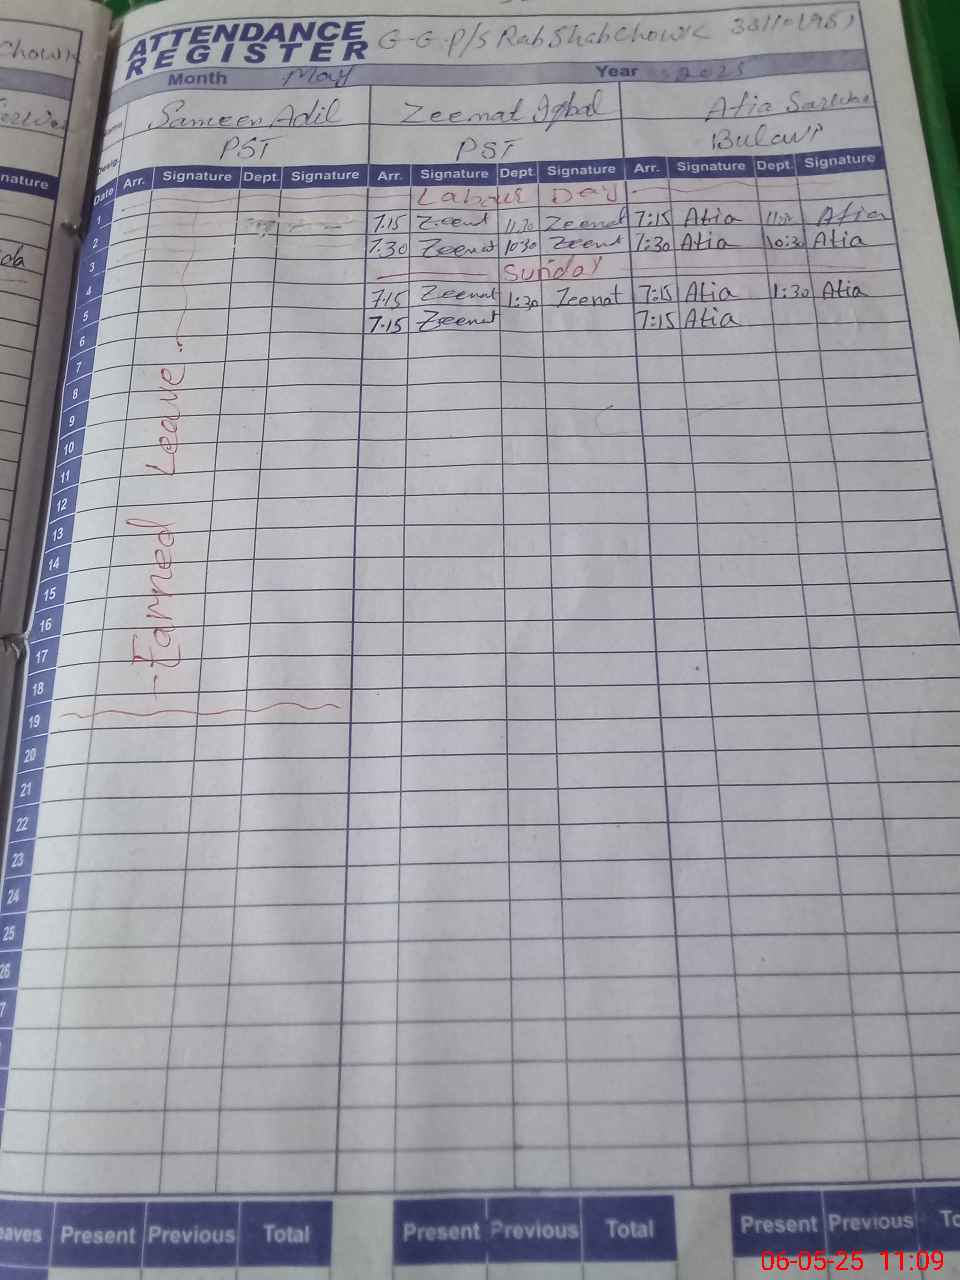 chowk
nature
ATTENDANCE REGISTER
G-G-P/S RabShabChowk
Month May Year 2025
Sameen Adil Zeenat Iqbal Atia
PST PST Bulawi
Date Arr. Signature Dept. Signature Arr. Signature Dept. Signature Arr. Signature Dept. Signature
1 Labour Day
2 7.15 Zeenat 11.30 Zeenat 7:15 Atia 11:30 Atia
3 7.30 Zeenat 10:30 Zeenat 7:30 Atia 10:30 Atia
4 Sunday
5 7.15 Zeenat 1:30 Zeenat 7:15 Atia 1:30 Atia
6 7.15 Zeenat 7:15 Atia
7
8
9
10
11
12
13
14
15
16
17
18
19
20
21
22
23
24
25
26
7
Earned Leave
eaves Present Previous Total Present Previous Total Present Previous To
06-05-25 11:09